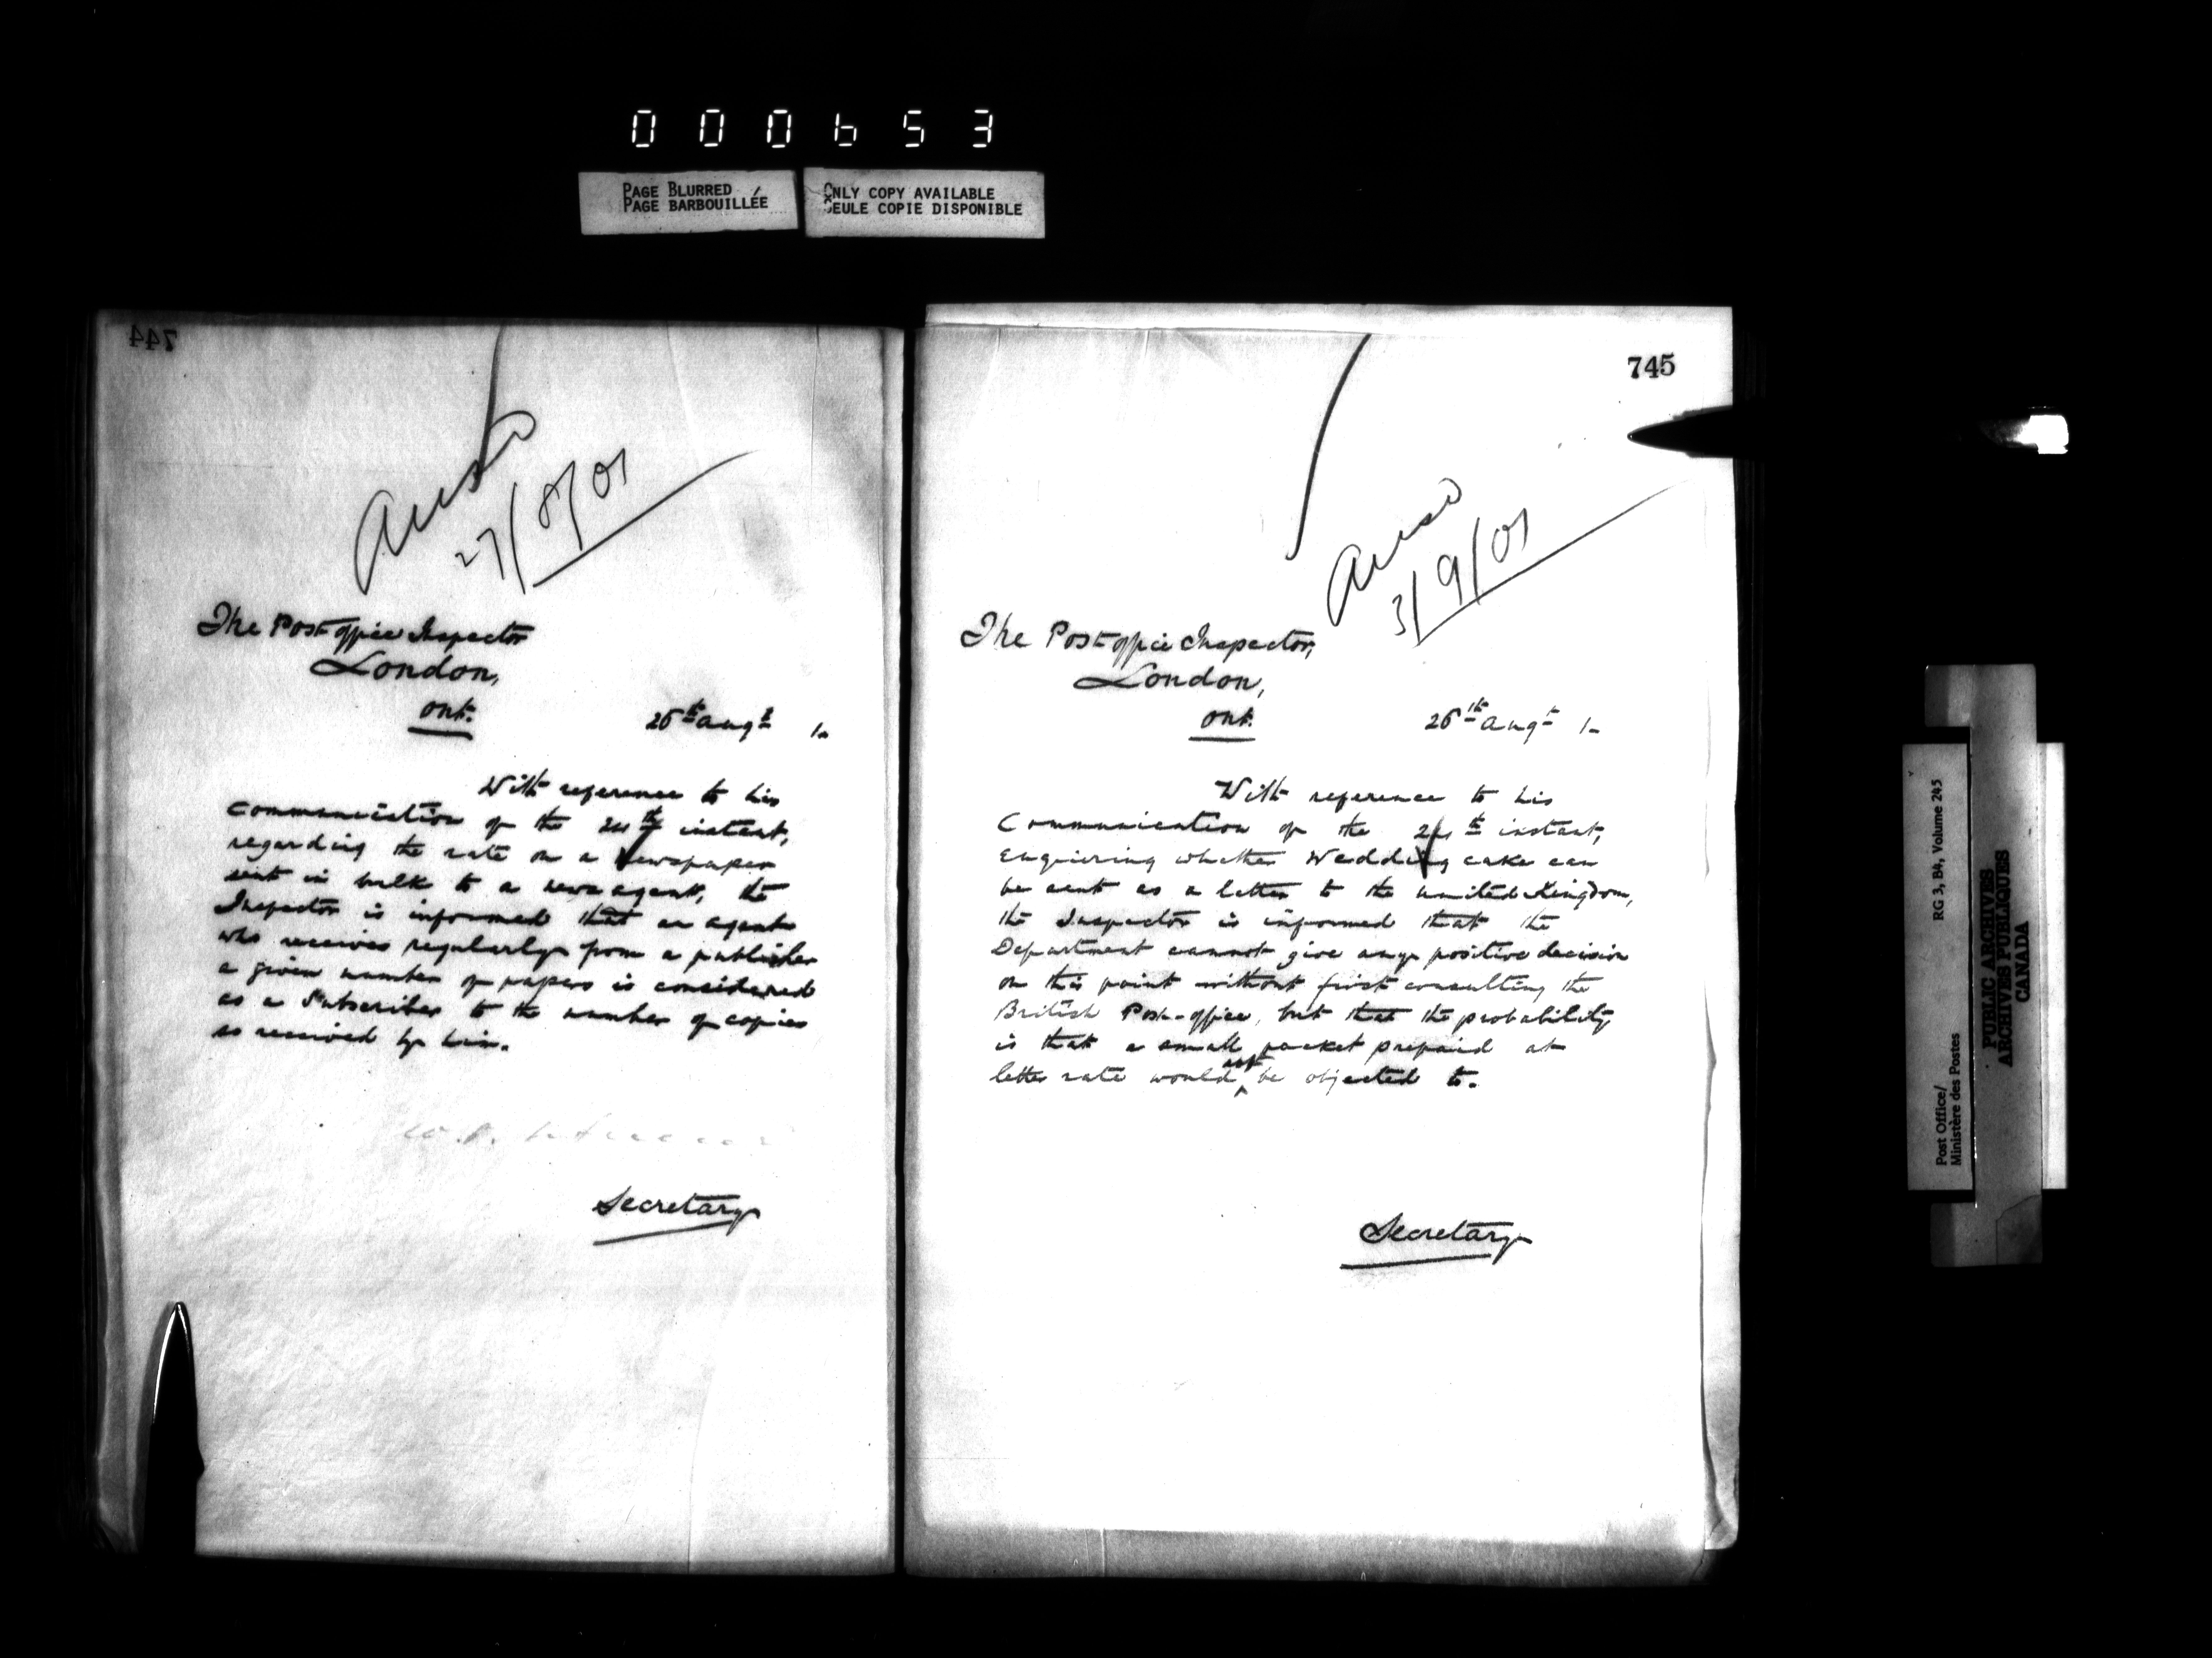 000653
PAGE BLURRED
PAGE BARBOUILLÉE
ONLY COPY AVAILABLE
SEULE COPIE DISPONIBLE
744
27/8/01
The Post office Inspector
London,
Ont.
26th Augt 1-
With reference to his
communication of the 24th instant,
regarding the rate on a newspaper
sent in bulk to a news agent, the
Inspector is informed that an agent
who receives regularly from a publisher
a given number of papers is considered
as a Subscriber to the number of copies
so received by him.
Secretary
745
3/9/01
The Post office Inspector,
London,
Ont.
26th Augt 1-
With reference to his
Communication of the 24th instant,
enquiring whether Wedding cake can
be sent as a letter to the United Kingdom,
the Inspector is informed that the
Department cannot give any positive decision
on this point without first consulting the
British Post-office, but that the probability
is that a small packet prepaid at
letter rate would not be objected to.
Secretary
Post Office/
Ministère des Postes
RG 3, B4, Volume 245
PUBLIC ARCHIVES
ARCHIVES PUBLIQUES
CANADA